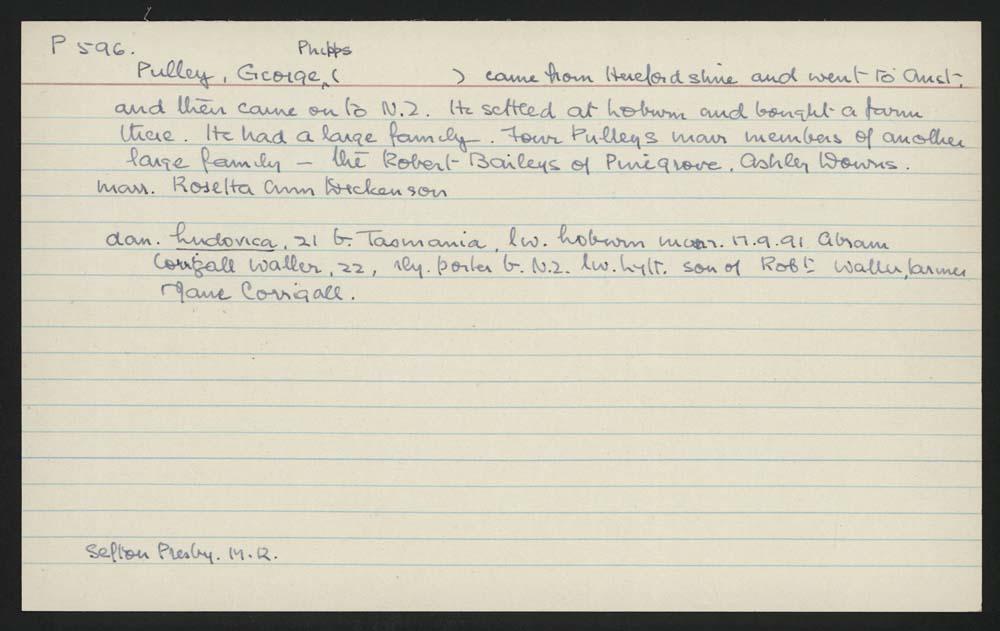 P 596.
Phipps
Pulley, George, ( ) came from Herefordshire and went to Aust.
and then came on to N.Z. He settled at Loburn and bought a farm
there. He had a large family. Four Pulleys marr members of another
large family – the Robert Baileys of Pinegrove, Ashley Downs.
marr. Rosetta Ann Dickenson
dau. Ludovica, 21 b. Tasmania, lw. Loburn marr. 17.9.91 Abram
Corrigall Waller, 22, rly. porter b. N.Z. lw. Lylt. son of Robt Waller, farmer
Jane Corrigall.
Sefton Presby. M.R.